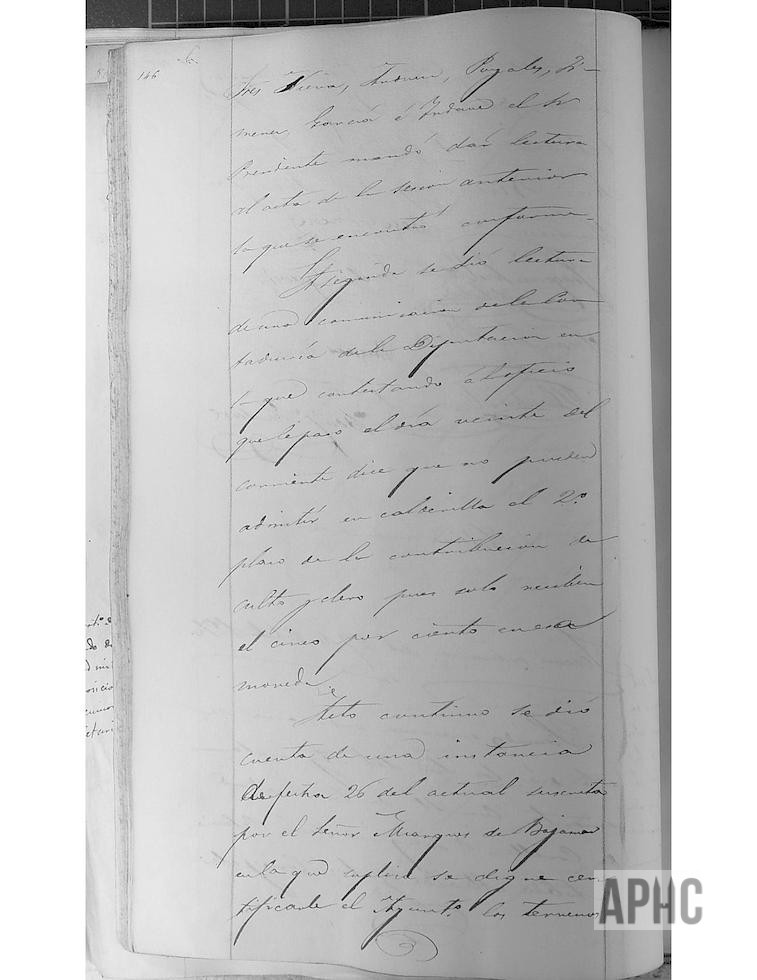 146
tres Viera, Andueu, Pugales, Xi-
menez, García é Indave el Sr
Presidente mandó dar lectura
al acta de la sesion anterior
la que se encontró conforme.
Seguida se dió lectura
de una comunicacion de la Con
taduría de la Diputacion en
la que contestando al oficio
que le paso el día veinte del
corriente dice que no pueden
admitir en calderilla el 2.º
plaso de la contribucion de
culto y clero pues solo reciben
el cinco por ciento en esa
moneda.
Acto continuo se dió
cuenta de una instancia
de fecha 26 del actual suscrita
por el Señor Marques de Bajamar
en la que suplica se digne cer
tificarle el Ayunt.º los terrenos
APHC